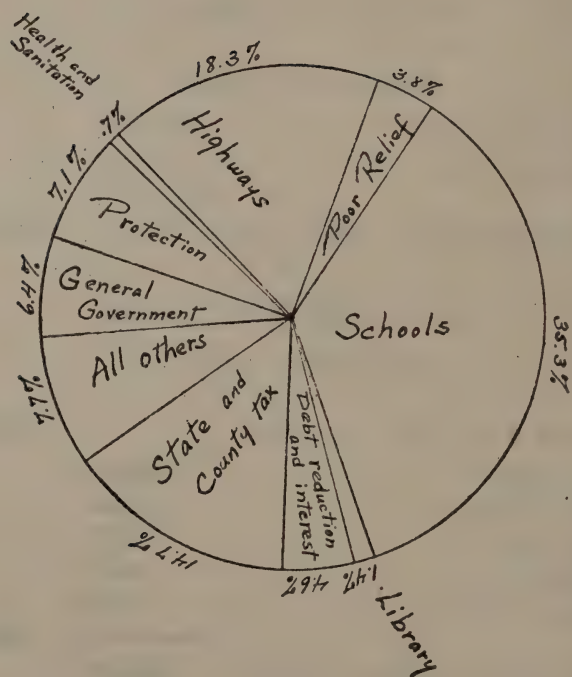 Health and
Sanitation
.7%
18.3%
Highways
3.8%
Poor Relief
35.3%
Schools
1.4%
Library
4.6%
Debt reduction
and interest
14.7%
State and
County tax
7.7%
All others
6.4%
General
Government
7.1%
Protection